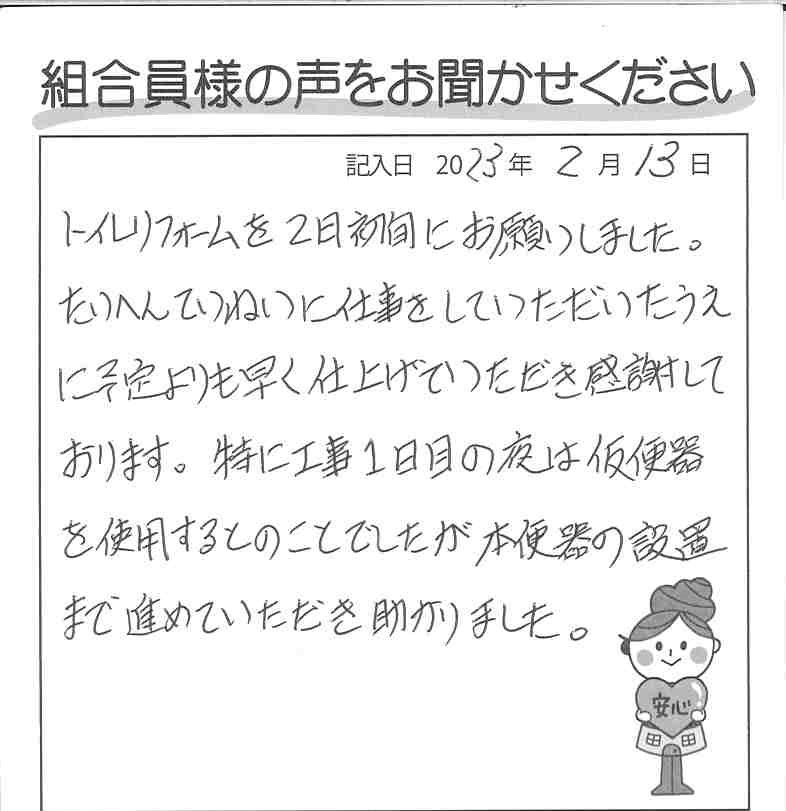 組合員様の声をお聞かせください
記入日 2023年 2月13日
トイレリフォームを2日初旬にお願いしました。
たいへんていねいに仕事をしていただいたうえ
に予定よりも早く仕上げていただき感謝して
おります。特に工事1日目の夜は仮便器
を使用するとのことでしたが本便器の設置
まで進めていただき助かりました。
安心